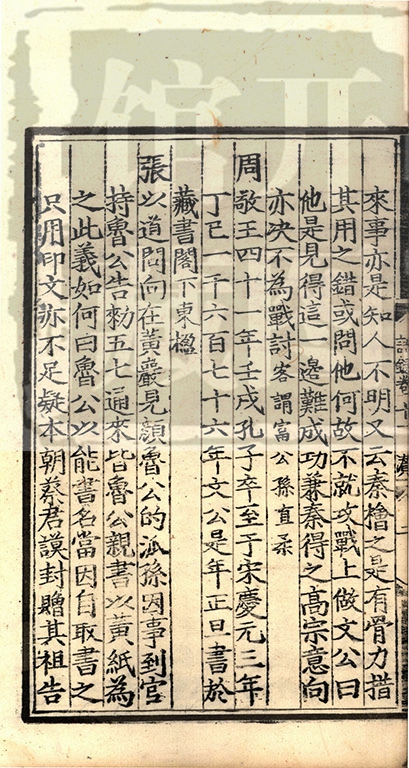 來事亦是知人不明又云秦檜之是有骨力措
其用之錯或問他何故不就攻戰上做文公曰
他是見得這一邊難成功兼秦得之高宗意向
亦决不為戰討客謂富公孫直柔
周敬王四十一年壬戌孔子卒至于宋慶元三年
丁巳一千六百七十六年文公是年正旦書於
藏書閣下東楹
張以道問向在黃巖見顏魯公的派孫因事到官
持魯公告勑五七通來皆魯公親書以黃紙為
之此義如何曰魯公以能書名當因自取書之
只用印文亦不足疑本朝蔡君謨封贈其祖告